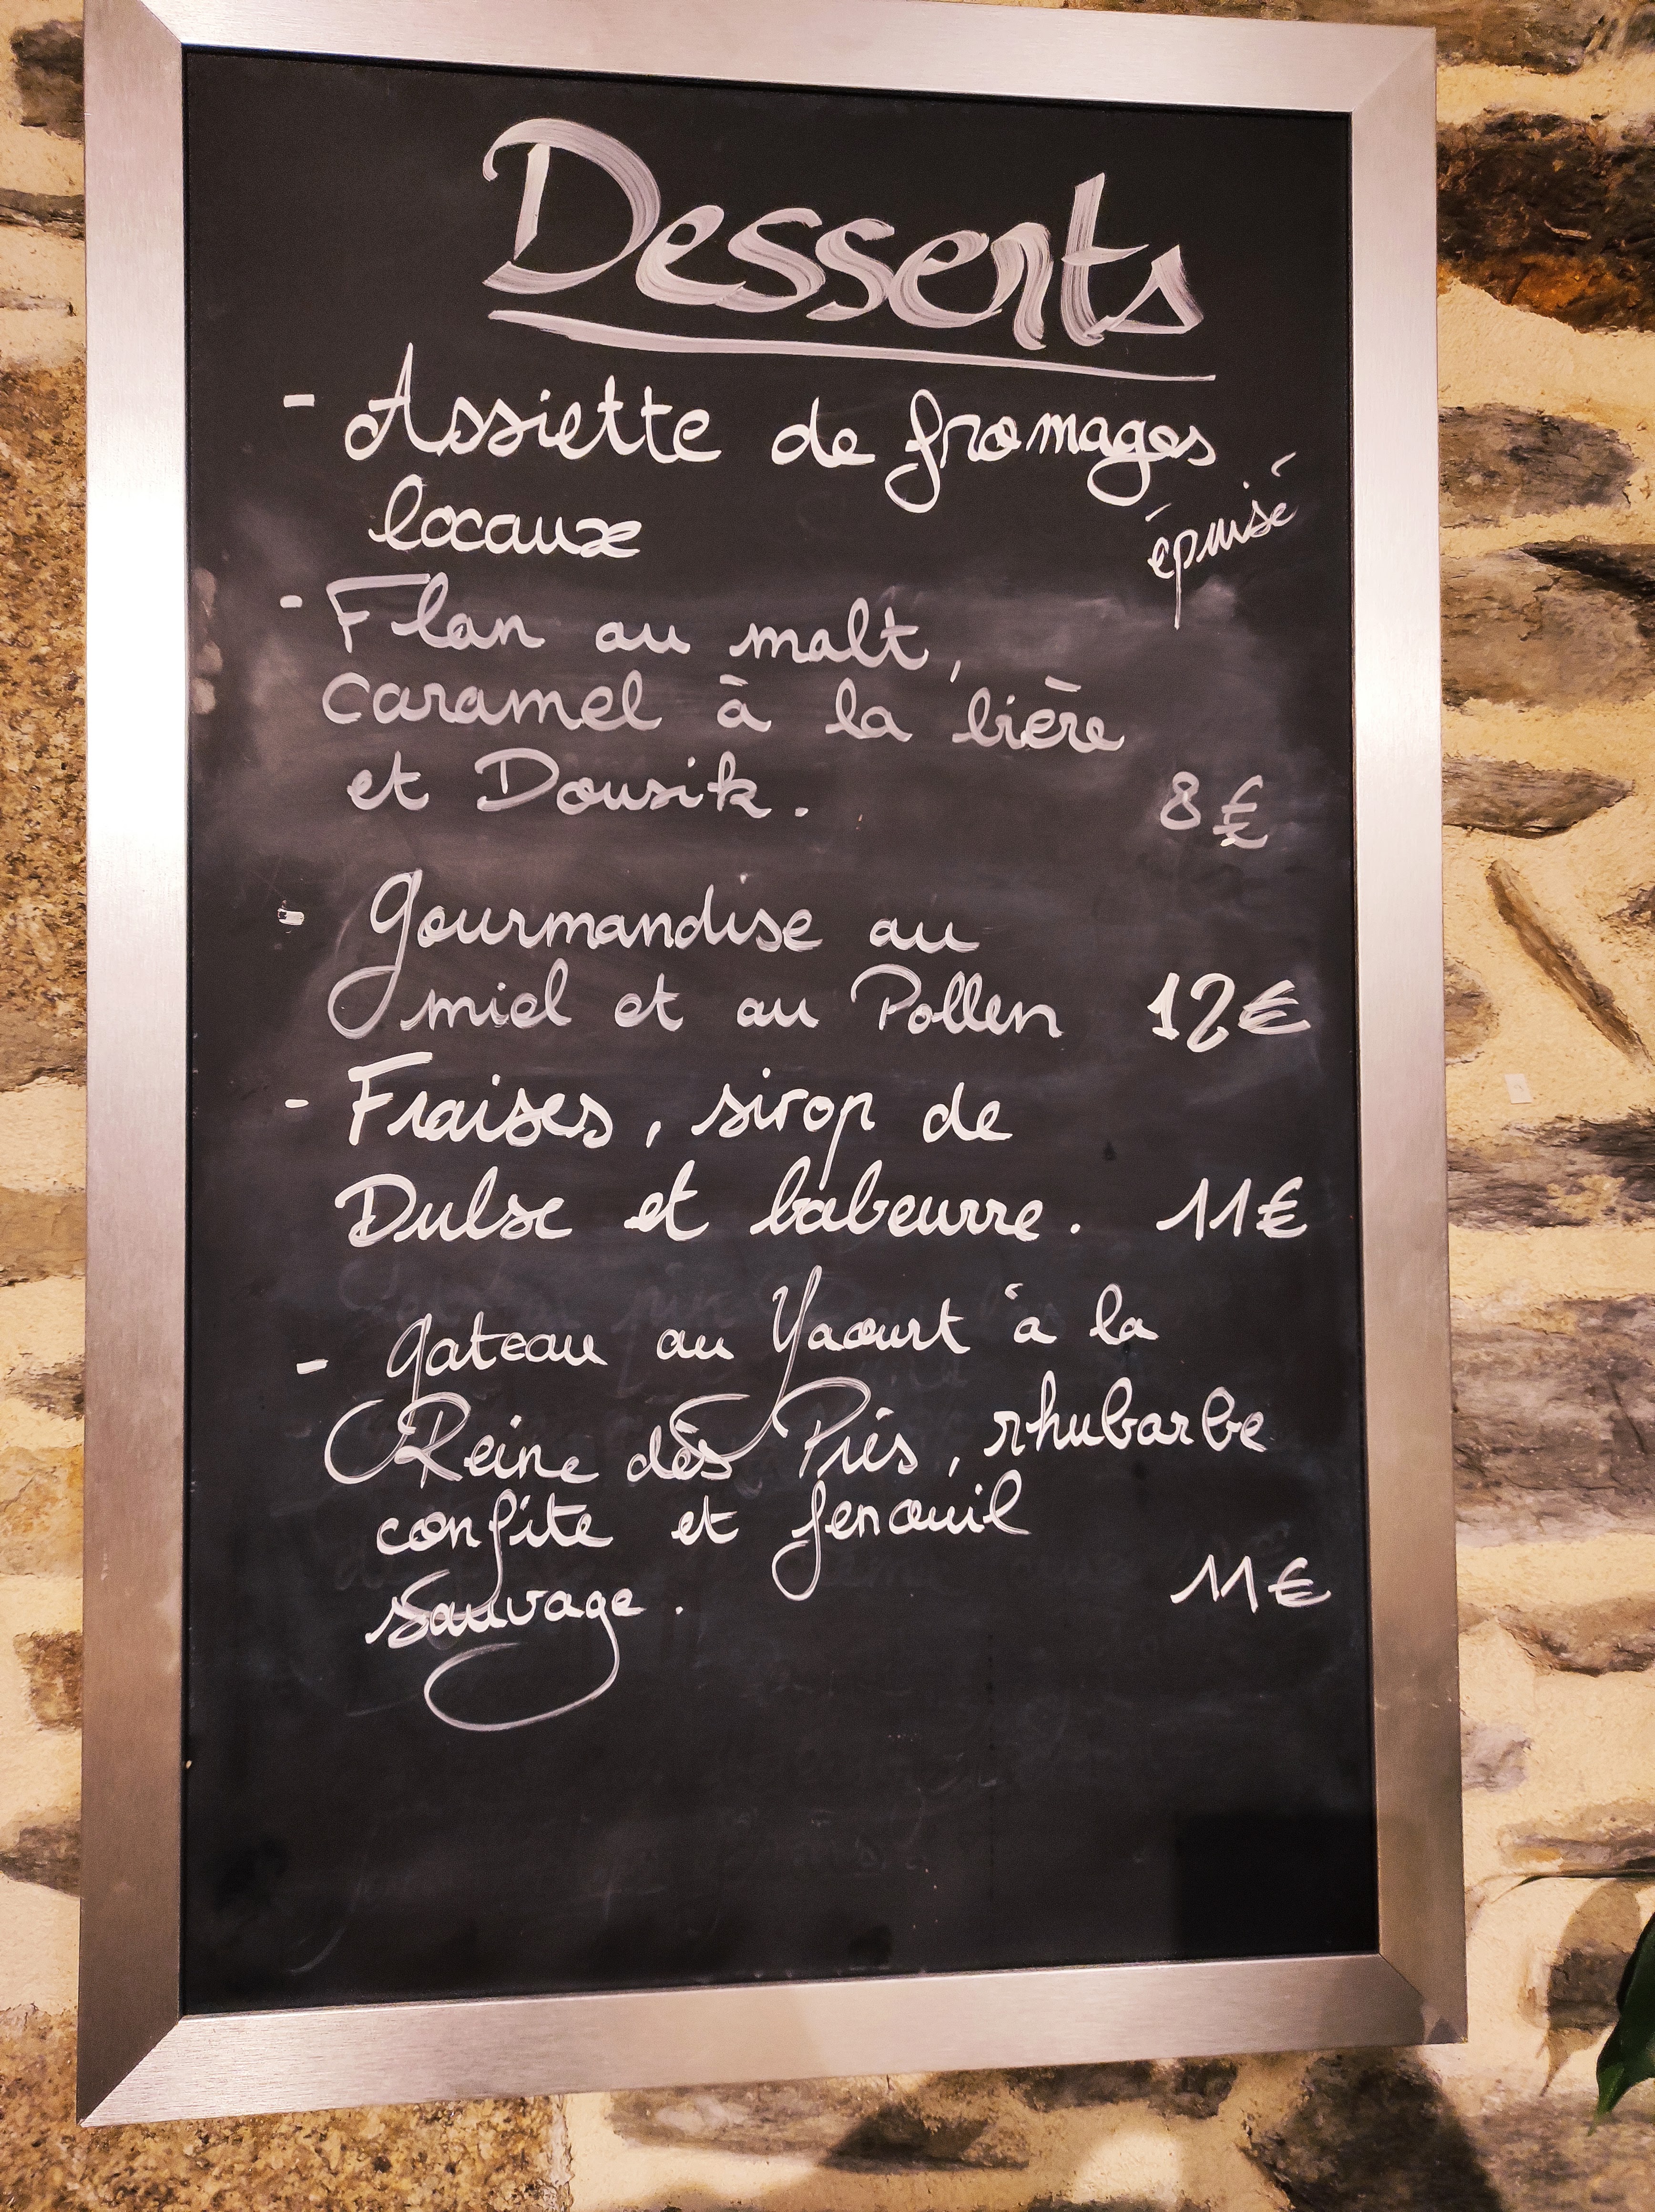 Desserts
- Assiette de fromages
locaux épuisé
- Flan au malt,
caramel à la bière
et Dousik. 8€
- Gourmandise au
miel et au Pollen 12€
- Fraises, sirop de
Dulse et babeurre. 11€
- gateau au Yaourt à la
Reine dès Prés, rhubarbe
confite et fenouil
sauvage. 11€